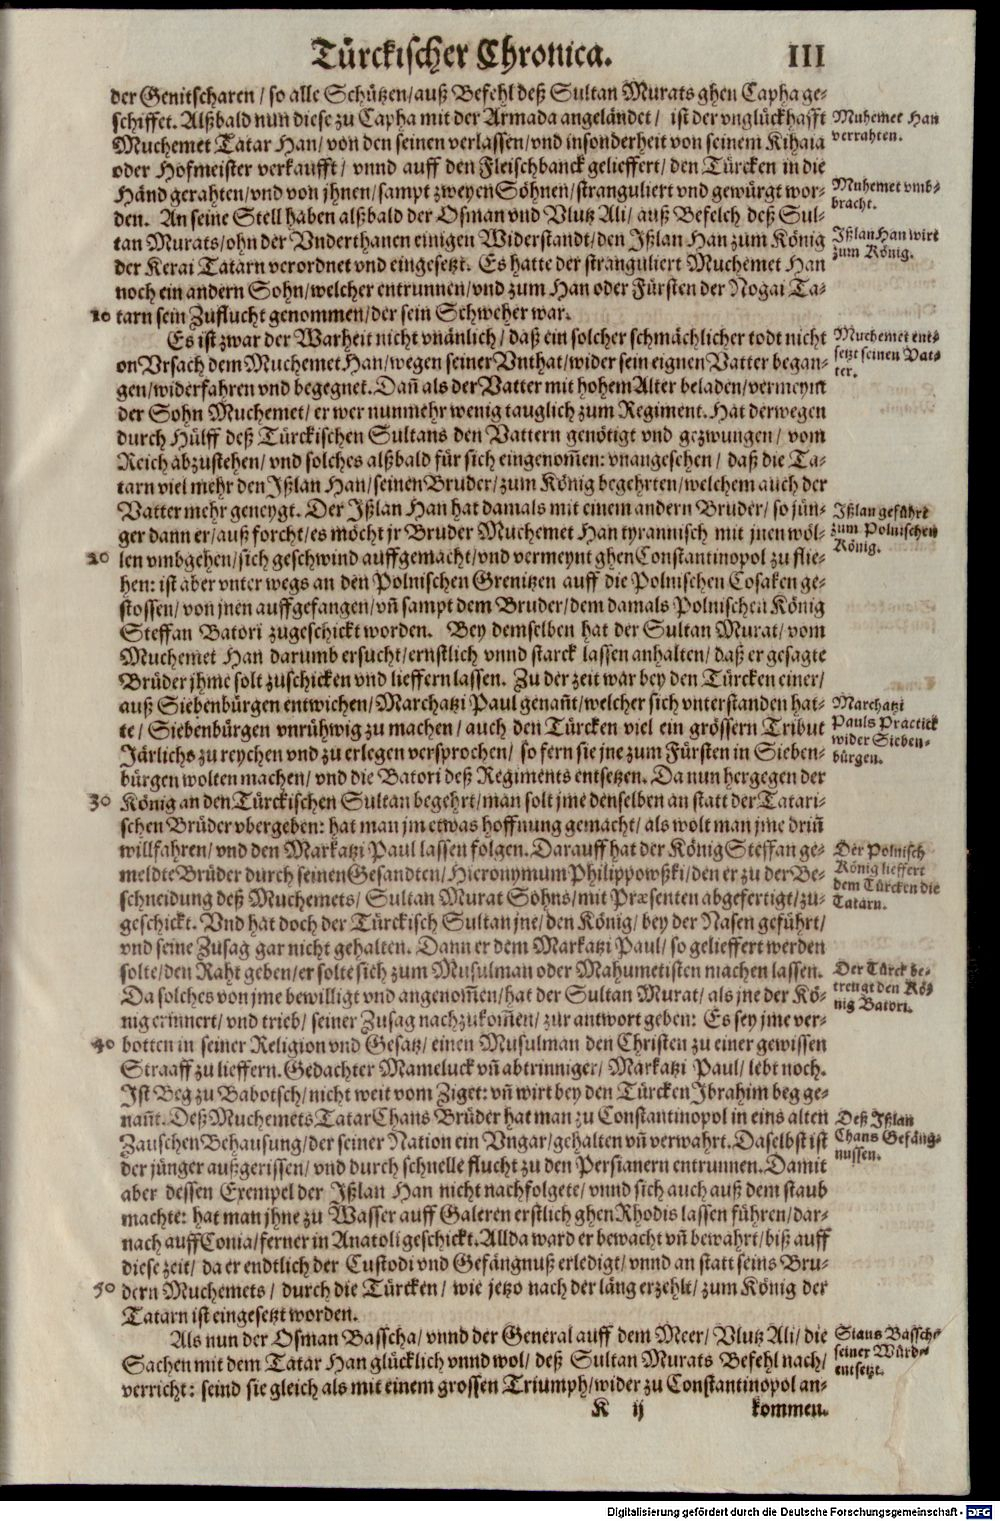 Türckischer Chronica. III
der Genitscharen / so alle Schützen/auß Befehl deß Sultan Murats ghen Capha ge-
schiffet. Alßbald nun diese zu Capha mit der Armada angeländet / ist der vnglückhafft
Muchemet Tatar Han/ von den seinen verlassen/vnd insonderheit von seinem Kihaia
oder Hofmeister verkaufft/ vnnd auff den Fleischbanck gelieffert/ den Türcken in die
Händ gerahten/vnd von jhnen/sampt zweyen Söhnen/stranguliert vnd gewürgt wor-
den. An seine Stell haben alßbald der Osman vnd Vlutz Ali/ auß Befelch deß Sul-
tan Murats/ohn der Vnderthanen einigen Widerstandt/den Ißlan Han zum König
der Kerai Tatarn verordnet vnd eingesetzt. Es hatte der stranguliert Muchemet Han
noch ein andern Sohn/welcher entrunnen/vnd zum Han oder Fürsten der Nogai Ta-
10 tarn sein Zuflucht genommen/der sein Schweher war.
Es ist zwar der Warheit nicht vnänlich/ daß ein solcher schmächlicher todt nicht
on Vrsach dem Muchemet Han/wegen seiner Vnthat/wider sein eignen Vatter began-
gen/widerfahren vnd begegnet. Dañ als der Vatter mit hohem Alter beladen/vermeynt
der Sohn Muchemet/ er wer nunmehr wenig tauglich zum Regiment. Hat derwegen
durch Hülff deß Türckischen Sultans den Vattern genötigt vnd gezwungen/ vom
Reich abzustehen/ vnd solches alßbald für sich eingenom̃en: vnangesehen/ daß die Ta-
tarn viel mehr den Ißlan Han/seinen Bruder/zum König begehrten/welchem auch der
Vatter mehr geneygt. Der Ißlan Han hat damals mit einem andern Bruder/ so jün-
ger dann er/auß forcht/es möcht jr Bruder Muchemet Han tyrannisch mit jnen wöl-
20 len vmbgehen/sich geschwind auffgemacht/vnd vermeynt ghen Constantinopol zu flie-
hen: ist aber vnter wegs an den Polnischen Grenitzen auff die Polnischen Cosaken ge-
stossen/ von jnen auffgefangen/vñ sampt dem Bruder/dem damals Polnischen König
Steffan Batori zugeschickt worden. Bey demselben hat der Sultan Murat/ vom
Muchemet Han darumb ersucht/ernstlich vnnd starck lassen anhalten/ daß er gesagte
Brüder jhme solt zuschicken vnd lieffern lassen. Zu der zeit war bey den Türcken einer/
auß Siebenbürgen entwichen/Marchatzi Paul genañt/welcher sich vnterstanden hat-
te/ Siebenbürgen vnrühwig zu machen/ auch den Türcken viel ein grössern Tribut
Järlichs zu reychen vnd zu erlegen versprochen/ so fern sie jne zum Fürsten in Sieben-
bürgen wolten machen/ vnd die Batori deß Regiments entsetzen. Da nun hergegen der
30 König an den Türckischen Sultan begehrt/man solt jme denselben an statt der Tatari-
schen Brüder vbergeben: hat man jm etwas hoffnung gemacht/ als wolt man jme driñ
willfahren/ vnd den Markatzi Paul lassen folgen. Darauff hat der König Steffan ge-
meldte Brüder durch seinen Gesandten/Hieronymum Philippowßki/den er zu der Be-
schneidung deß Muchemets/ Sultan Murat Sohns/mit Præsenten abgefertigt/zu-
geschickt. Vnd hat doch der Türckisch Sultan jne/den König/ bey der Nasen geführt/
vnd seine Zusag gar nicht gehalten. Dann er dem Markatzi Paul/ so gelieffert werden
solte/den Raht geben/er solte sich zum Musulman oder Mahumetisten machen lassen.
Da solches von jme bewilligt vnd angenom̃en/hat der Sultan Murat/ als jne der Kö-
nig erinnert/ vnd trieb/ seiner Zusag nachzukom̃en/ zur antwort geben: Es sey jme ver-
40 botten in seiner Religion vnd Gesatz/ einen Musulman den Christen zu einer gewissen
Straaff zu lieffern. Gedachter Mameluck vñ abtrinniger/ Markatzi Paul/ lebt noch.
Ist Beg zu Babotsch/ nicht weit vom Ziget: vñ wirt bey den Türcken Ibrahim beg ge-
nañt. Deß Muchemets Tatar Chans Brüder hat man zu Constantinopol in eins alten
Zauschen Behausung/der seiner Nation ein Vngar/gehalten vñ verwahrt. Daselbst ist
der jünger außgerissen/ vnd durch schnelle flucht zu den Persianern entrunnen. Damit
aber dessen Exempel der Ißlan Han nicht nachfolgete/ vnnd sich auch auß dem staub
machte: hat man jhne zu Wasser auff Galeren erstlich ghen Rhodis lassen führen/dar-
nach auff Conia/ferner in Anatoli geschickt. Allda ward er bewacht vñ bewahrt/biß auff
diese zeit/ da er endtlich der Custodi vnd Gefängnuß erledigt/ vnnd an statt seins Bru-
50 dern Muchemets/ durch die Türcken/ wie jetzo nach der läng erzehlt/ zum König der
Tatarn ist eingesetzt worden.
Als nun der Osman Basscha/ vnnd der General auff dem Meer/ Vlutz Ali/ die
Sachen mit dem Tatar Han glücklich vnnd wol/ deß Sultan Murats Befehl nach/
verricht: seind sie gleich als mit einem grossen Triumph/wider zu Constantinopol an-
K ij kommen.
Muhemet Han
verrahten.
Muhemet vmb-
bracht.
Ißlan Han wirt
zum König.
Muchemet ent-
setzt seinen Vat-
ter.
Ißlan geführt
zum Polnischen
König.
Marchatzi
Pauls Practick
wider Sieben-
bürgen.
Der Polnisch
König lieffert
dem Türcken die
Tatarn.
Der Türck be-
trengt den Kö-
nig Batori.
Deß Ißlan
Chans Gefäng-
nussen.
Siaus Basscha
seiner Würd-
entsetzt.
Digitalisierung gefördert durch die Deutsche Forschungsgemeinschaft - DFG